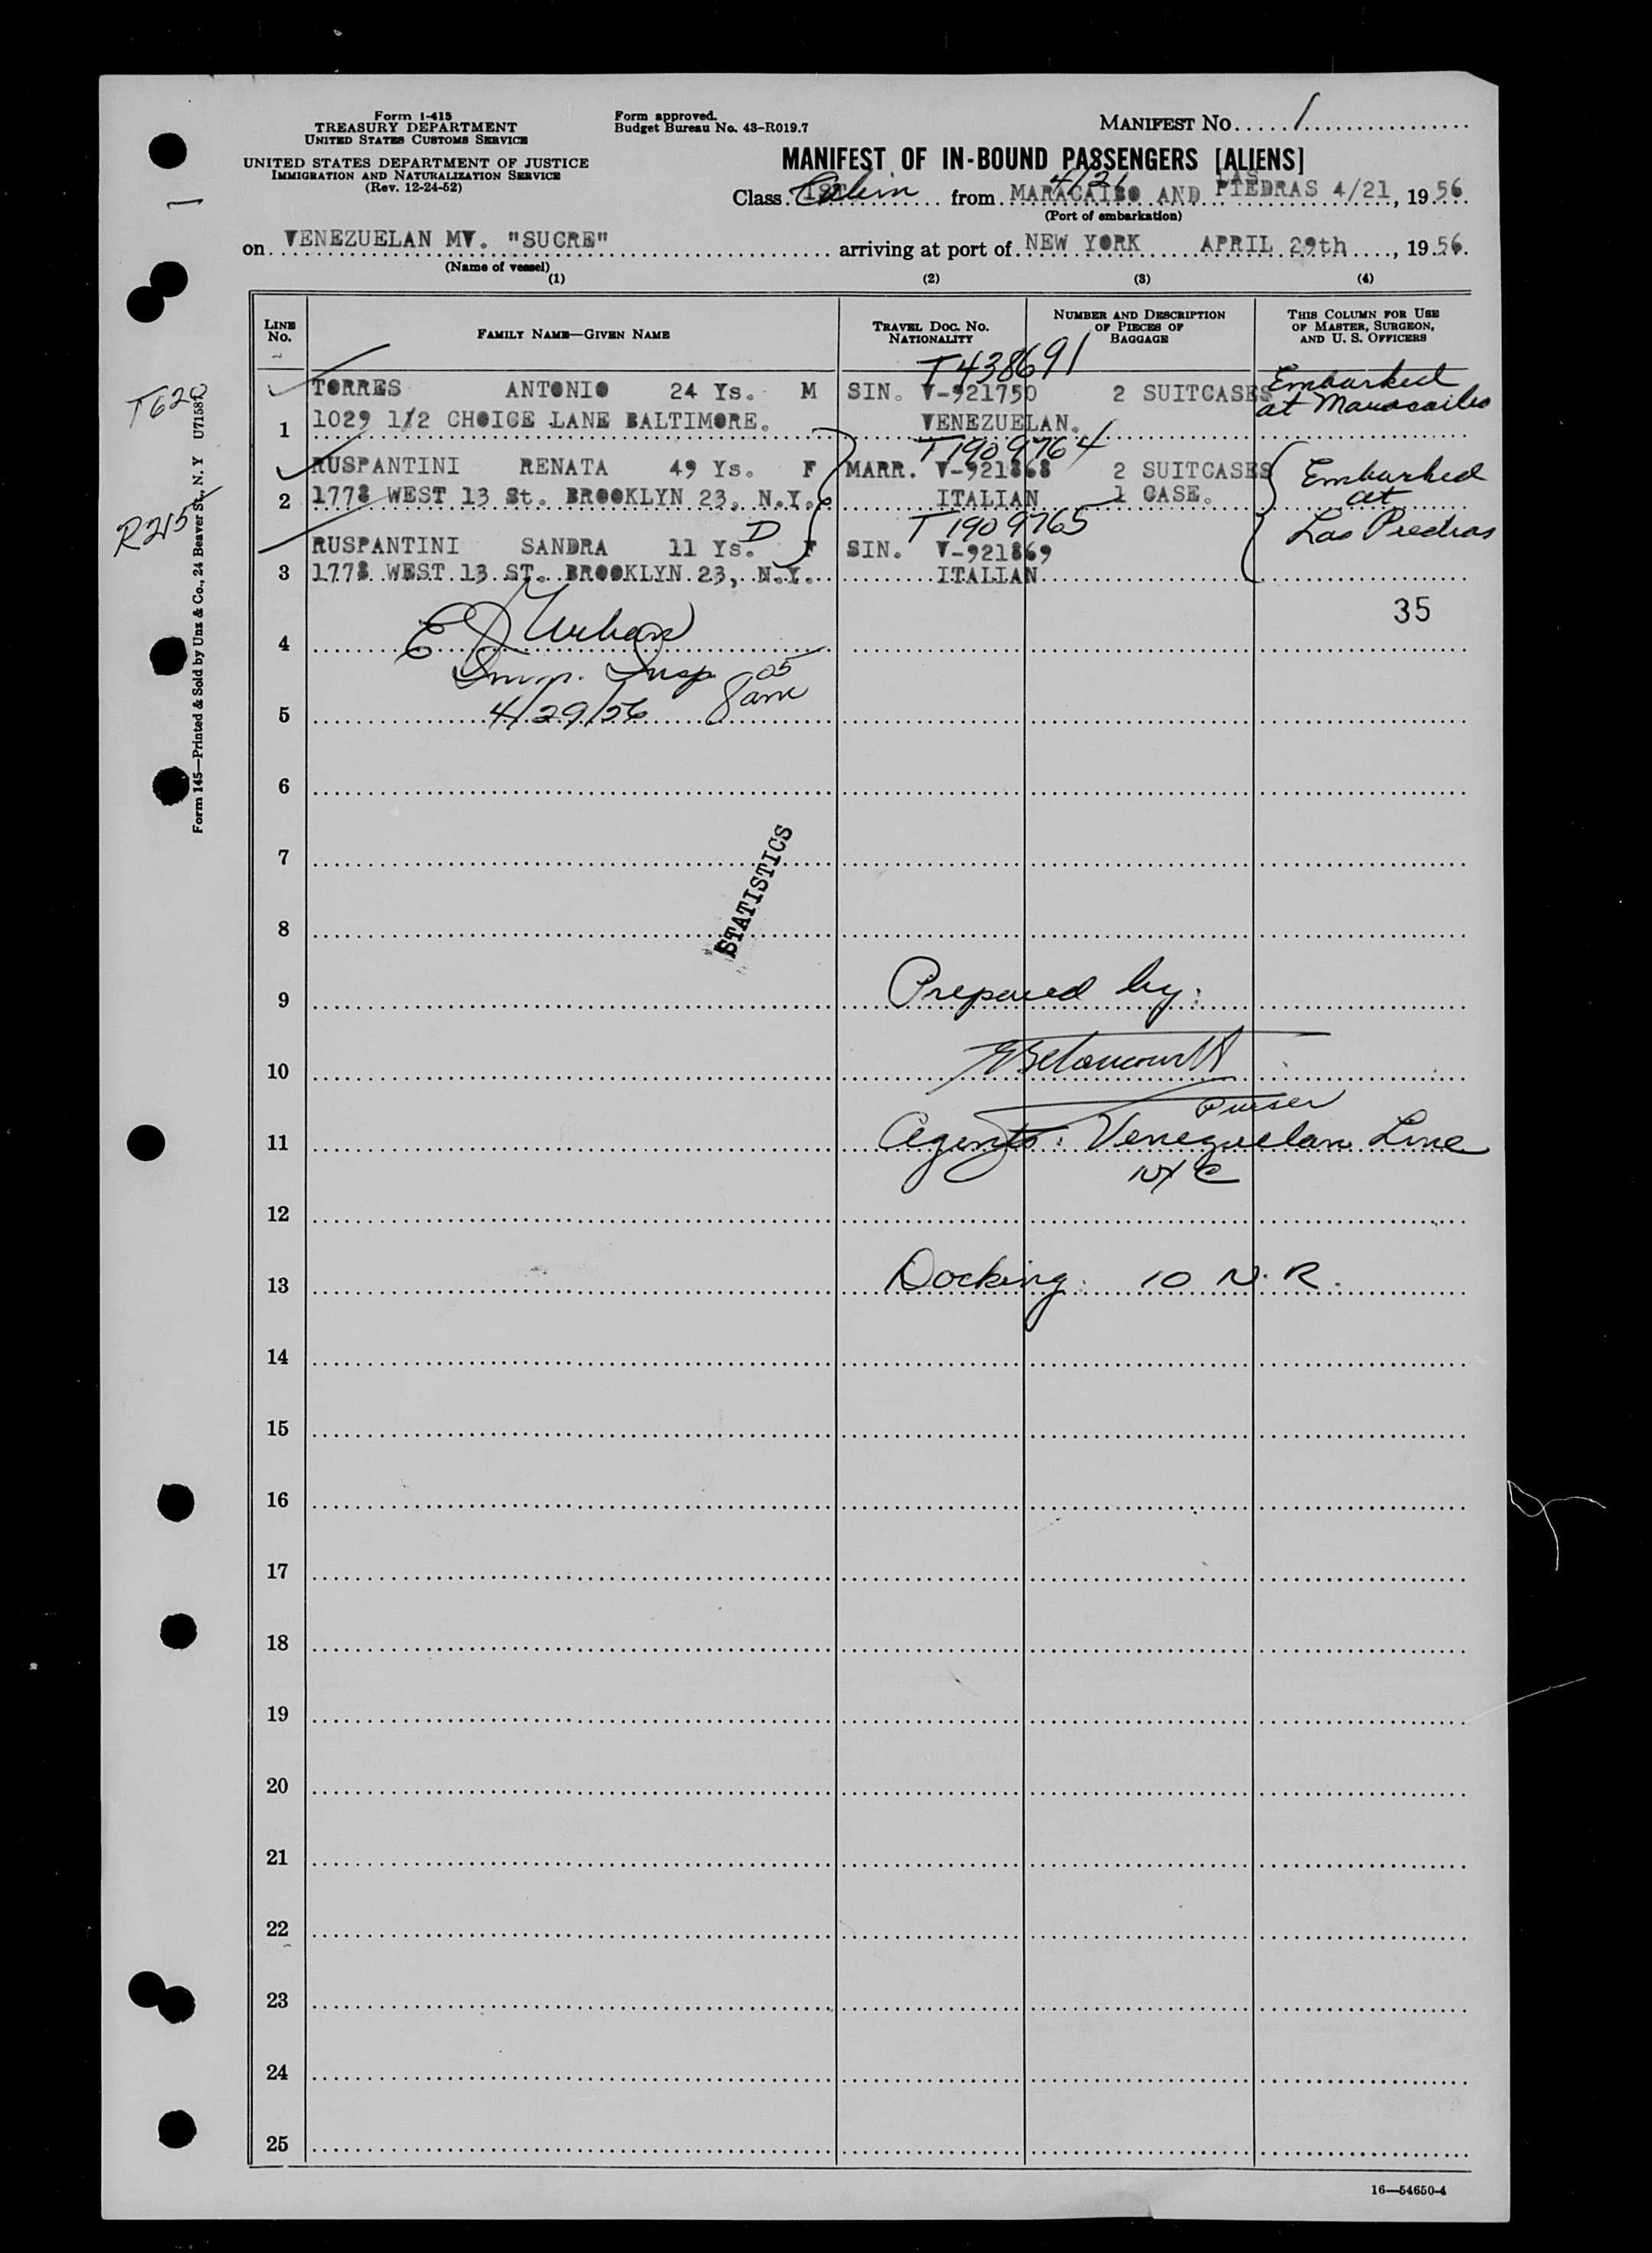 Form I-415
TREASURY DEPARTMENT
UNITED STATES CUSTOMS SERVICE
UNITED STATES DEPARTMENT OF JUSTICE
IMMIGRATION AND NATURALIZATION SERVICE
(Rev. 12-24-52)
Form approved.
Budget Bureau No. 43-R019.7
MANIFEST NO. 1
MANIFEST OF IN-BOUND PASSENGERS [ALIENS]
4/21 LAS
Class 1ST Cabin from MARACAIBO AND PIEDRAS 4/21, 1956
(Port of embarkation)
on VENEZUELAN MV. "SUCRE" arriving at port of NEW YORK APRIL 29th, 1956.
(Name of vessel)
(1) (2) (3) (4)
LINE NO. FAMILY NAME—GIVEN NAME TRAVEL DOC. NO. NATIONALITY NUMBER AND DESCRIPTION OF PIECES OF BAGGAGE THIS COLUMN FOR USE OF MASTER, SURGEON, AND U. S. OFFICERS
T438691
TORRES ANTONIO 24 Ys. M SIN. V-921750 2 SUITCASES Embarked
at Maracaibo
1 1029 1/2 CHOICE LANE BALTIMORE. VENEZUELAN.
T1909764
RUSPANTINI RENATA 49 Ys. F MARR. V-921868 2 SUITCASES Embarked
2 1778 WEST 13 St. BROOKLYN 23, N.Y. ITALIAN 1 CASE. at
D T1909765 Las Piedras
RUSPANTINI SANDRA 11 Ys. F SIN. V-921869
3 1778 WEST 13 ST. BROOKLYN 23, N.Y. ITALIAN
35
4 E J Urban
Imm. Insp 8 05 am
5 4/29/56
6
7
STATISTICS
8
9 Prepared by:
10 Betancourt
Purser
11 Agents: Venezuelan Line
NYC
12
13 Docking: 10 N.R.
14
15
16
17
18
19
20
21
22
23
24
25
16—54650-4
T620
R215
Form 145—Printed & Sold by Unz & Co., 24 Beaver St., N. Y U71587
1